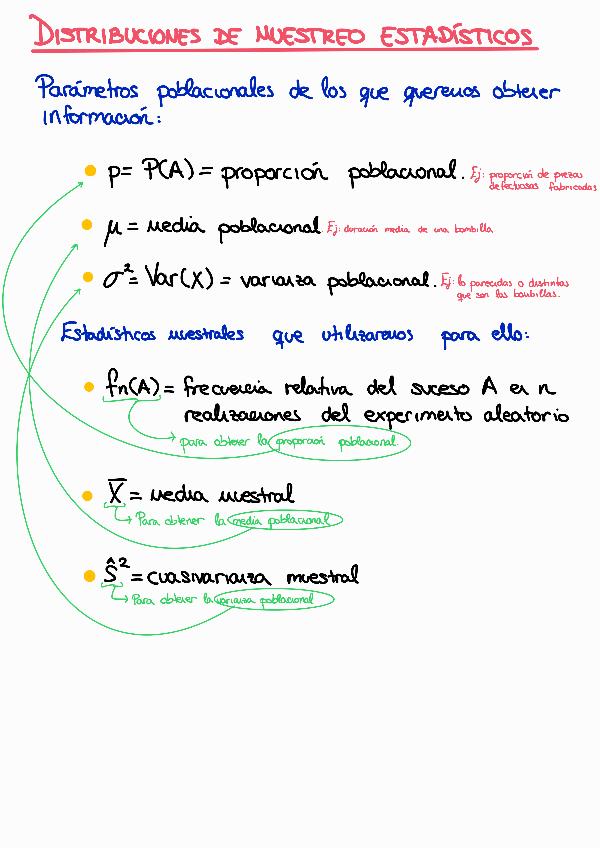 DISTRIBUCIONES DE MUESTREO ESTADÍSTICOS
Parámetros poblacionales de los que queremos obtener
información:
p = P(A) = proporción poblacional. Ej: proporción de piezas
defectuosas fabricadas
μ = media poblacional. Ej: duración media de una bombilla
σ² = Var(X) = varianza poblacional. Ej: lo parecidas o distintas
que son las bombillas.
Estadísticos muestrales que utilizaremos para ello:
fn(A) = frecuencia relativa del suceso A en n
realizaciones del experimento aleatorio
para obtener la proporción poblacional.
X̅ = media muestral
Para obtener la media poblacional
Ŝ² = cuasivarianza muestral
Para obtener la varianza poblacional